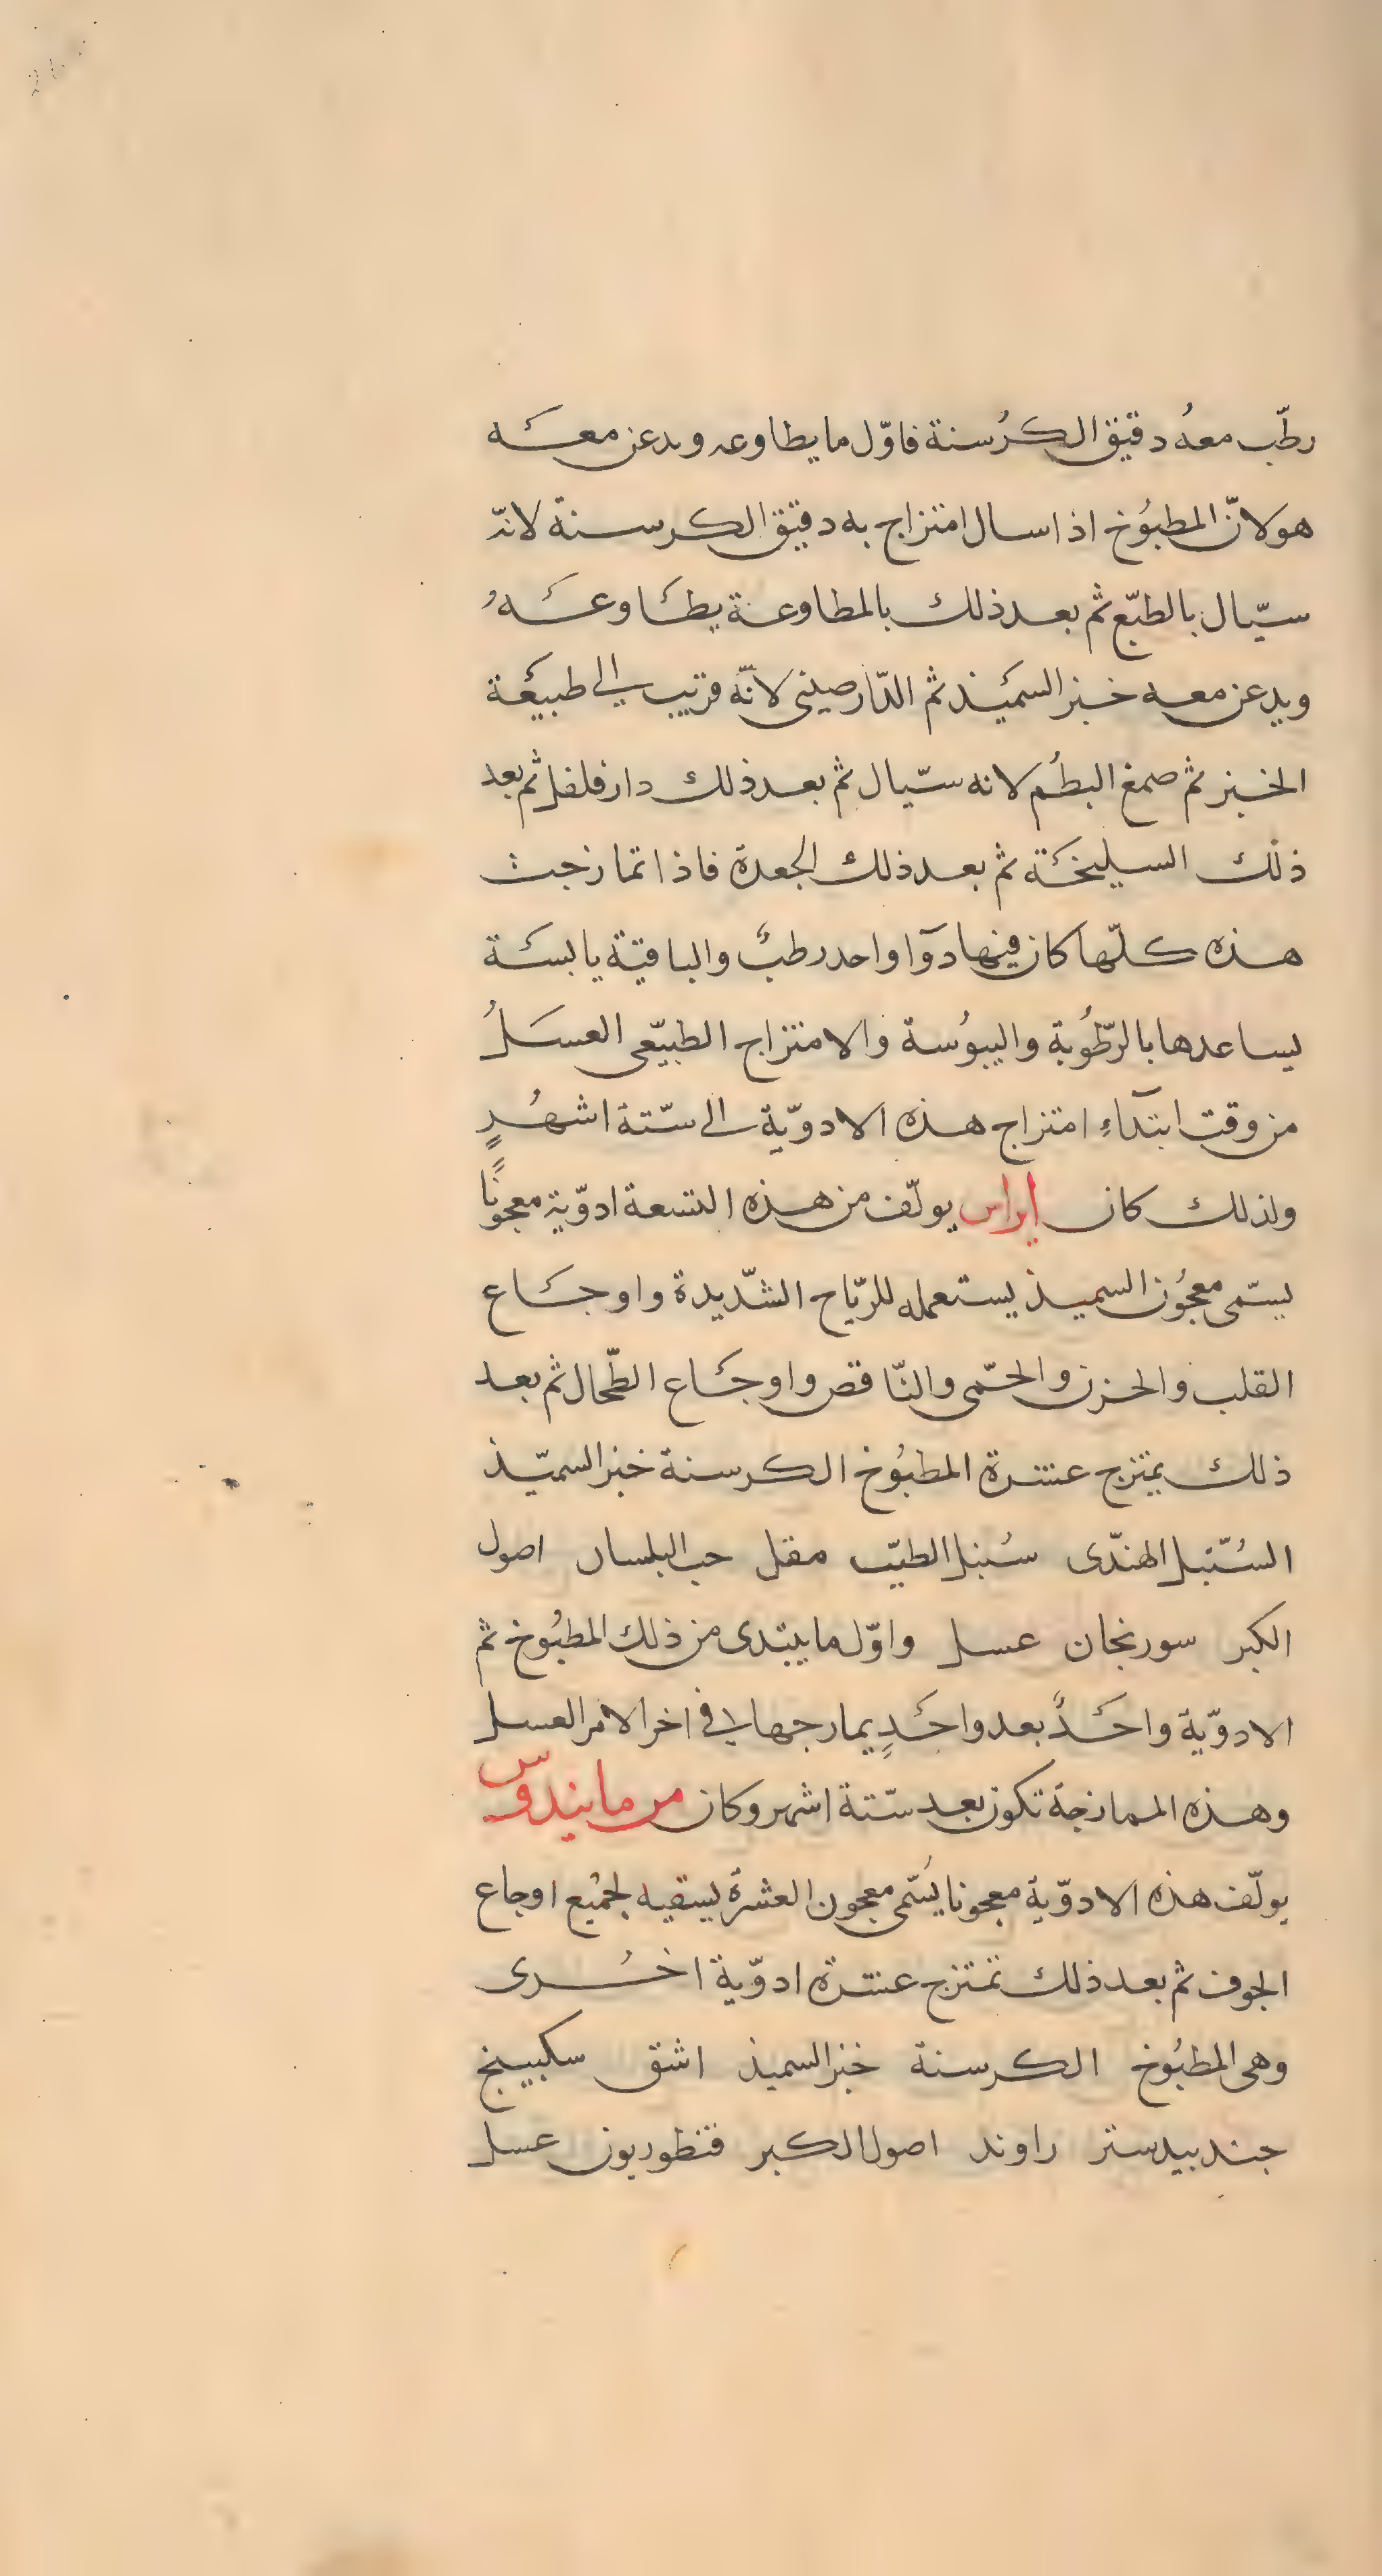 رطّب معهُ دقيق الكرُسنة فاوّل ما يطاوعه ويدعن معه
هو لانّ المطبُوخ اذا سال امتزاج به دقيق الكرسنة لانّه
سيّال بالطبّع ثم بعد ذلك بالمطاوعة يطاوعهُ
ويدعن معه خبز السميذ ثم الدّارصينى لانّه قريب الى طبيعة
الخبز ثم صمغ البطُم لانه سيّال ثم بعد ذلك دارفلفل ثم بعد
ذلك السليخة ثم بعد ذلك الجعدة فاذا تمازجت
هذه كلّها كان فيها دوآ واحد رطبٌ والباقية يابسة
يساعدها بالرّطُوبة واليبوُسة والامتزاج الطبيّعى العسَلُ
من وقت ابتدآءِ امتزاج هذه الادوّية الى ستّة اشهُرٍ
ولذلك كان ايراس يولّف من هذه التسعة ادوّية معجونًا
يسمّى معجُون السميذ يستعمله للريّاح الشّديدة واوجاع
القلب والحزن والحمّى والنّاقص واوجاع الطّحال ثم بعد
ذلك يمتزج عشرة المطبُوخ الكرسنة خبز السميّذ
السُنّبل الهندّى سُنبل الطيّب مقل حب البلسان اصول
الكبر سورنجان عسل واوّل ما يبتدى من ذلك المطبُوخ ثم
الادوّية واحدً بعد واحدٍ يمارجها فى اخر الامر العسل
وهذه الممازجة تكون بعد ستّة اشهر وكان مرمانيدوس
يولّف هذه الادوّية معجونا يُسمّى معجون العشرة يسقيه لجميُع اوجاع
الجوف ثم بعد ذلك تمتزج عشرة ادوّية اخُرى
وهى المطبُوخ الكرسنة خبز السميذ اشق سكبينج
جندبيدستر راوند اصول الكبر قنطوريون عسل